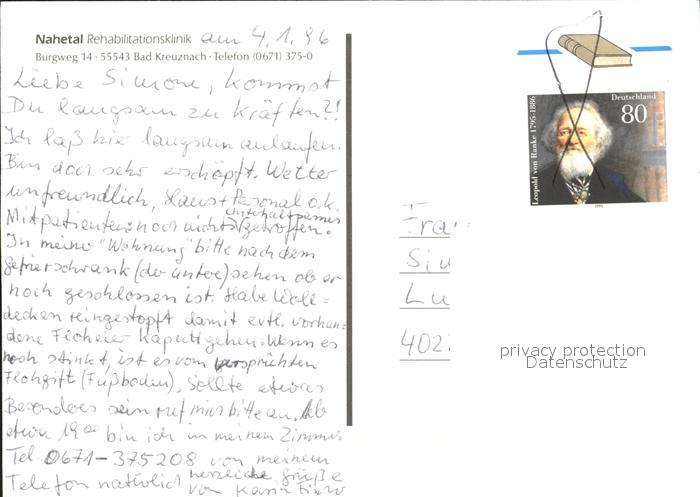 Nahetal Rehabilitationsklinik am 4.1.96
Burgweg 14 · 55543 Bad Kreuznach · Telefon (0671) 375-0
Liebe Simone, kommst
Du langsam zu Kräften?!
Ich laß hier langsam anlaufen.
Bin doch sehr erschöpft. Wetter
unfreundlich, Haus + Personal o.k.
Mitpatienten: noch nichts Unterhaltsames getroffen.
In meine "Wohnung" bitte nach dem
Gefrierschrank (der untere) sehen ob er
noch geschlossen ist. Habe Woll=
decken reingestopft damit evtl. vorhan=
dene Floheier kaputt gehen. Wenn es
noch stinkt, ist es vom versprühten
Flohgift (Fußboden). Sollte etwas
Besonderes sein ruf mich bitte an. Ab
etwa 19 00 bin ich in meinem Zimmer
Tel. 0671-375208 von meinem
Telefon natürlich herzliche Grüße
von
Deutschland
80
Leopold von Ranke 1795-1886
1995
Fra
Si
Lu
402
privacy protection
Datenschutz